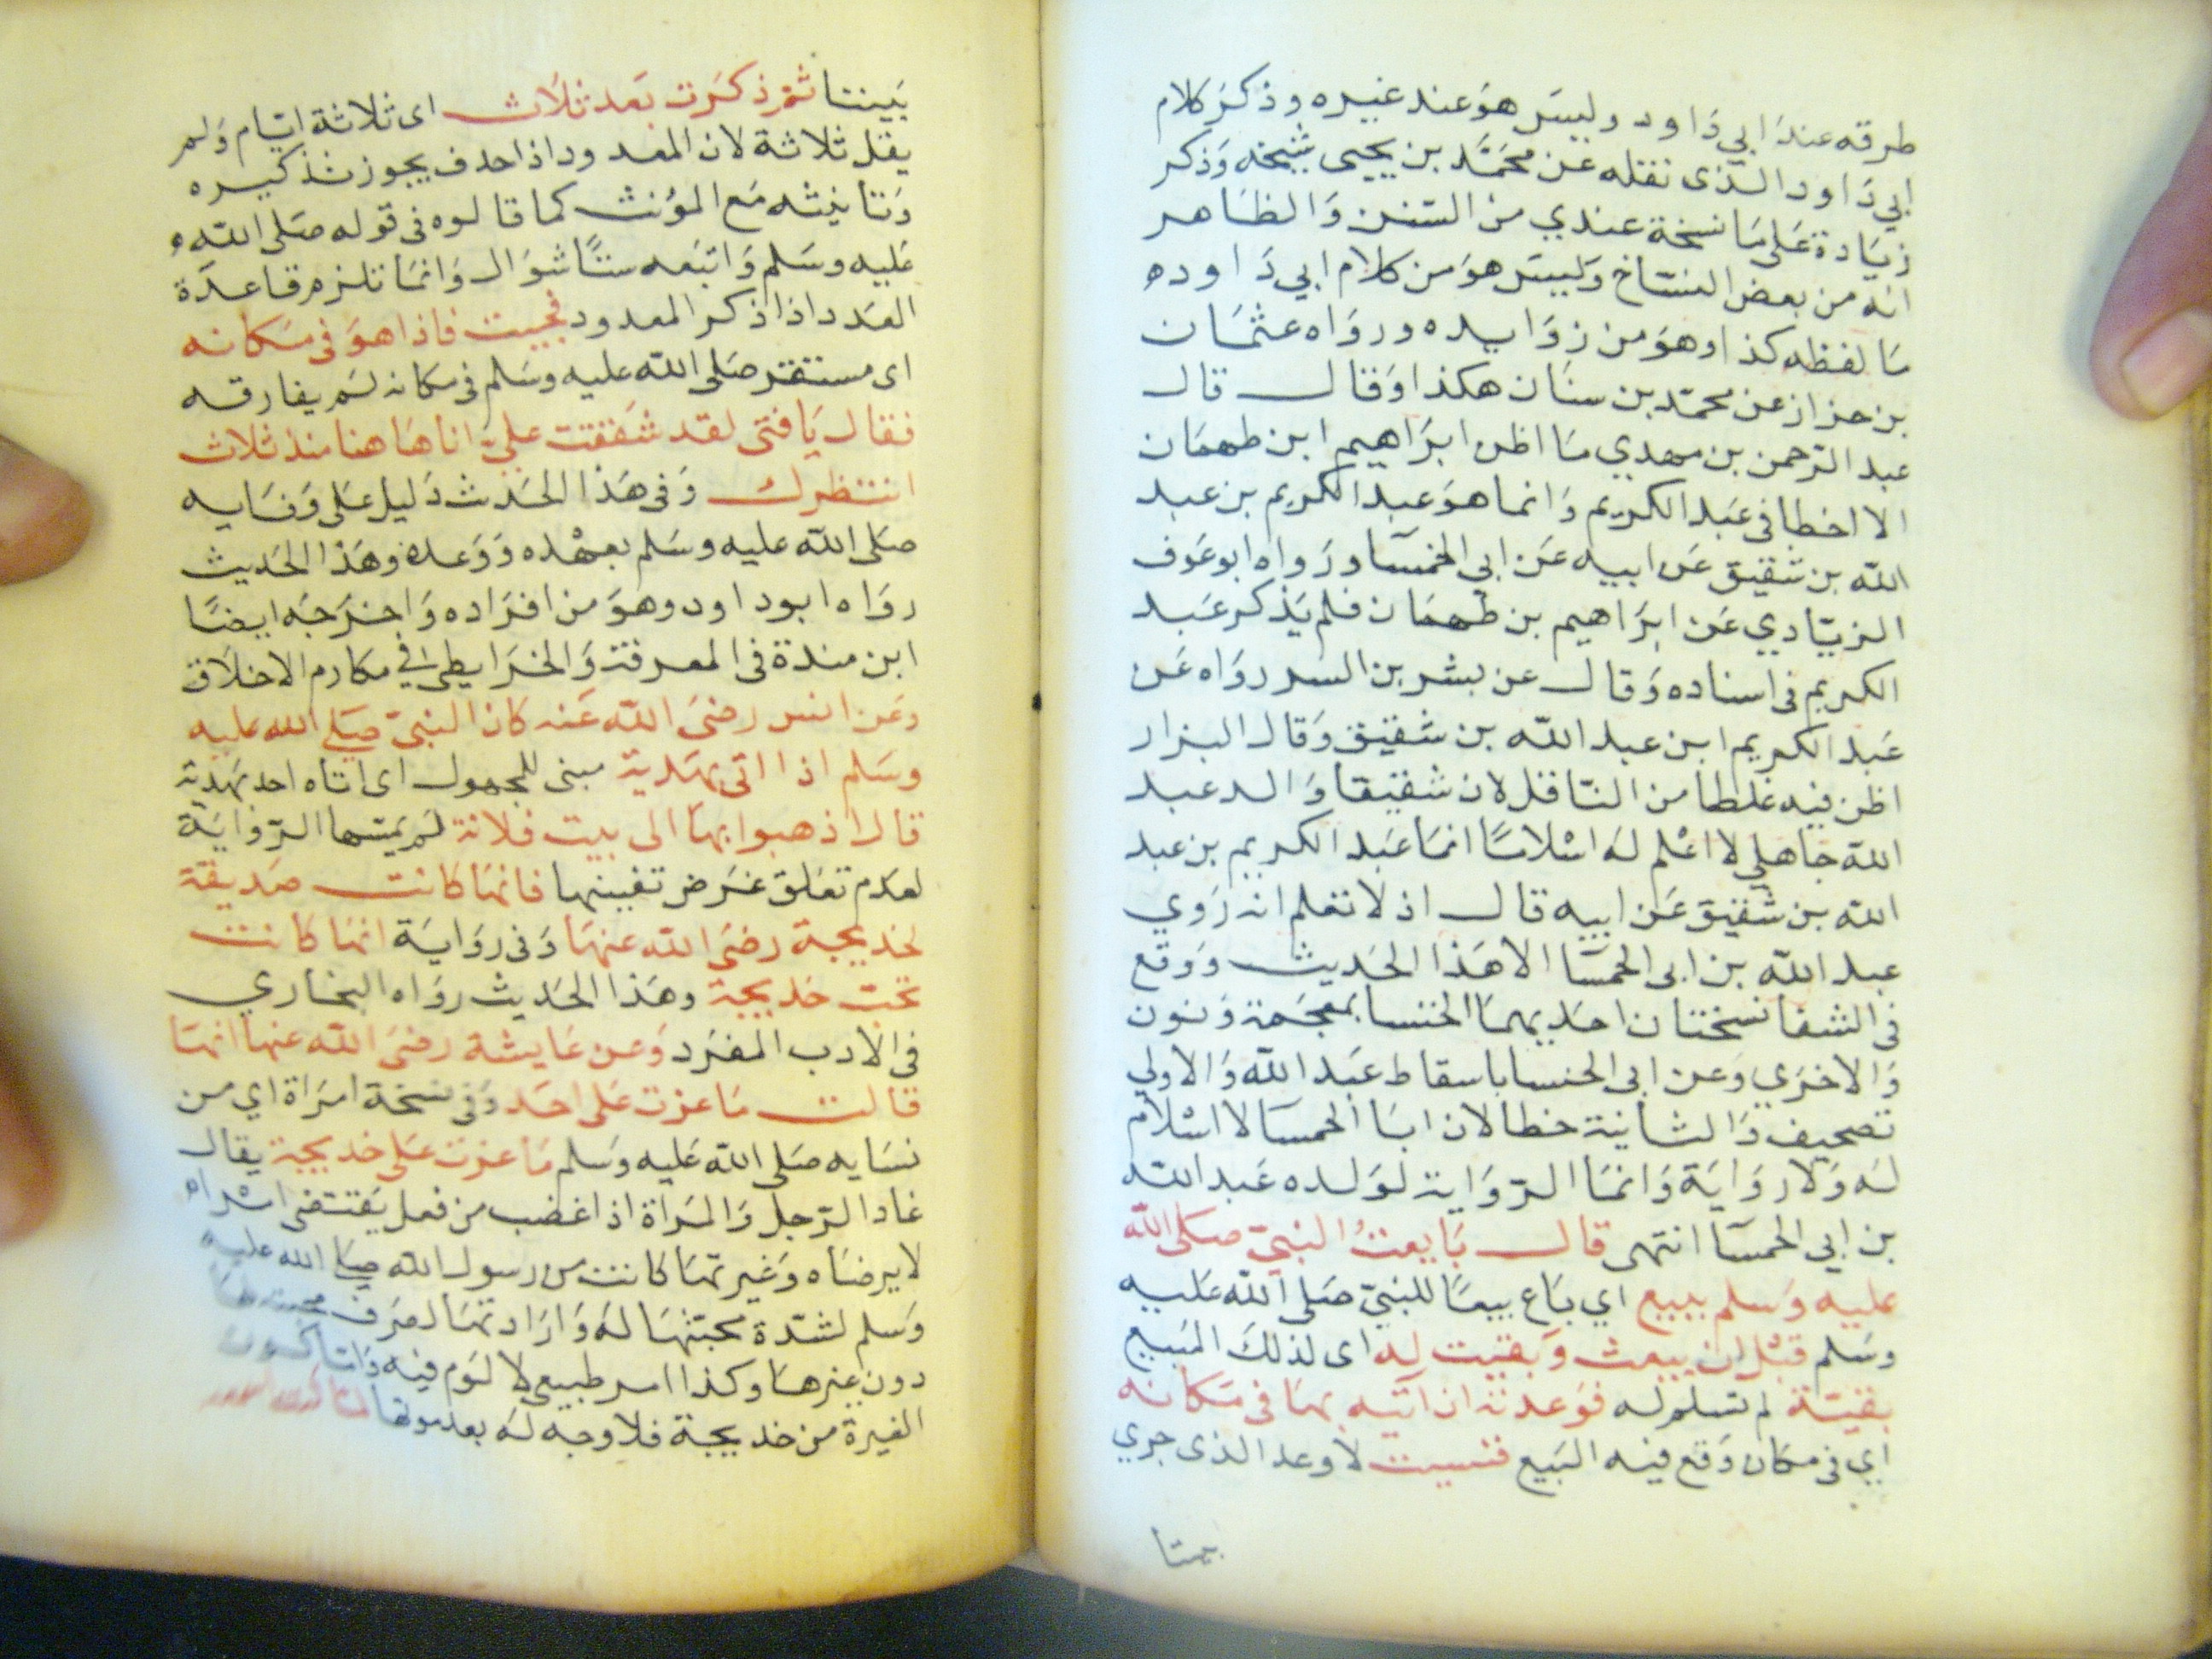 طرقه عند ابي داود وليس هو عند غيره وذكر كلام
ابي داود الذى نقله عن محمد بن يحيى شيخه وذكر
زيادة على ما نسخة عندي من السنن والظاهر
انه من بعض النساخ وليس هو من كلام ابي داوده
ما لفظه كذا وهو من زوايده ورواه عثمان
بن حزاز عن محمد بن سنان هكذا وقال قال
عبد الرحمن بن مهدي ما اظن ابراهيم ابن طهمان
الا اخطا فى عبد الكريم وانما هو عبد الكريم بن عبد
الله بن شقيق عن ابيه عن ابي الخمسا ورواه ابو عوف
الزيادي عن ابراهيم بن طهمان فلم يذكر عبد
الكريم فى اسناده وقال عن بشر بن السر رواه عن
عبد الكريم ابن عبد الله بن شقيق وقال البزار
اظن فيه غلطا من الناقل لان شقيقا والد عبد
الله جاهلي لا اعلم له اسلاما انما عبد الكريم بن عبد
الله بن شقيق عن ابيه قال اذ لا نعلم انه روي
عبد الله بن ابى الحمسا الا هذا الحديث ووقع
فى الشفا نسختان احديهما الخنسا بمعجمة ونون
والاخري وعن ابى الحنسا باسقاط عبد الله والاولي
تصحيف والثانية خطا لان ابا الحمسا لا اسلام
له ولا رواية وانما الرواية لولده عبد الله
بن ابي الحمسا انتهى قال بايعت النبي صلى الله
عليه وسلم ببيع اي باع بيعا للنبي صلى الله عليه
وسلم قبل ان يبعث وبقيت له اى لذلك المبيع
بقية لم تسلم له فوعدته ان آتيه بها فى مكانه
اي فى مكان وقع فيه البيع فنسيت لاوعد الذى جري
بيننا
بيننا ثم ذكرت بعد ثلاث اى ثلاثة ايام ولم
يقل ثلاثة لان المعدود اذا حذف يجوز تذكيره
وتانيثه مع المؤنث كما قالوه فى قوله صلى الله
عليه وسلم واتبعه ستا شوال وانما تلزم قاعدة
العدد اذا ذكر المعدود فجيت فاذا هو فى مكانه
اى مستقر صلى الله عليه وسلم فى مكانه لم يفارقه
فقال يا فتى لقد شققت علي انا هاهنا منذ ثلاث
انتظرك وفى هذا الحدث دليل على وفايه
صلى الله عليه وسلم بعهده ووعده وهذا الحديث
رواه ابو داود وهو من افراده واخرجه ايضا
ابن مندة فى المعرفة والخرايطى فى مكارم الاخلاق
وعن انس رضى الله عنه كان النبى صلى الله عليه
وسلم اذا اتى بهدية مبنى للمجهول اى اتاه احد بهدية
قال اذهبوا بها الى بيت فلانة لم يمسها الرواية
لعدم تعلق غرض تعيينها فانها كانت صديقة
لخديجة رضى الله عنها وفى رواية انها كانت
تحت خديجة وهذا الحديث رواه البخاري
فى الادب المفرد وعن عايشة رضى الله عنها انها
قالت ما غرت على احد وفى نسخة امراة اي من
نسايه صلى الله عليه وسلم ما غرت على خديجة يقال
غار الرجل والمراة اذا غضب من فعل يقتضى اشراه
لا يرضاه وغيرتها كانت من رسول الله صلى الله عليه
وسلم لشدة محبتها له وارادتها لصرف محبته لها
دون غيرها وكذا امر طبيعى لا لوم فيه واما كون
الغيرة من خديجة فلا وجه له بعد موتها